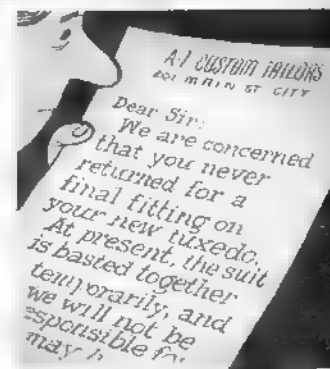 A-1 CUSTOM TAILORS
201 MAIN ST CITY
Dear Sir:
We are concerned
that you never
returned for a
final fitting on
your new tuxedo.
At present, the suit
is basted together
temporarily, and
we will not be
esponsible for
may